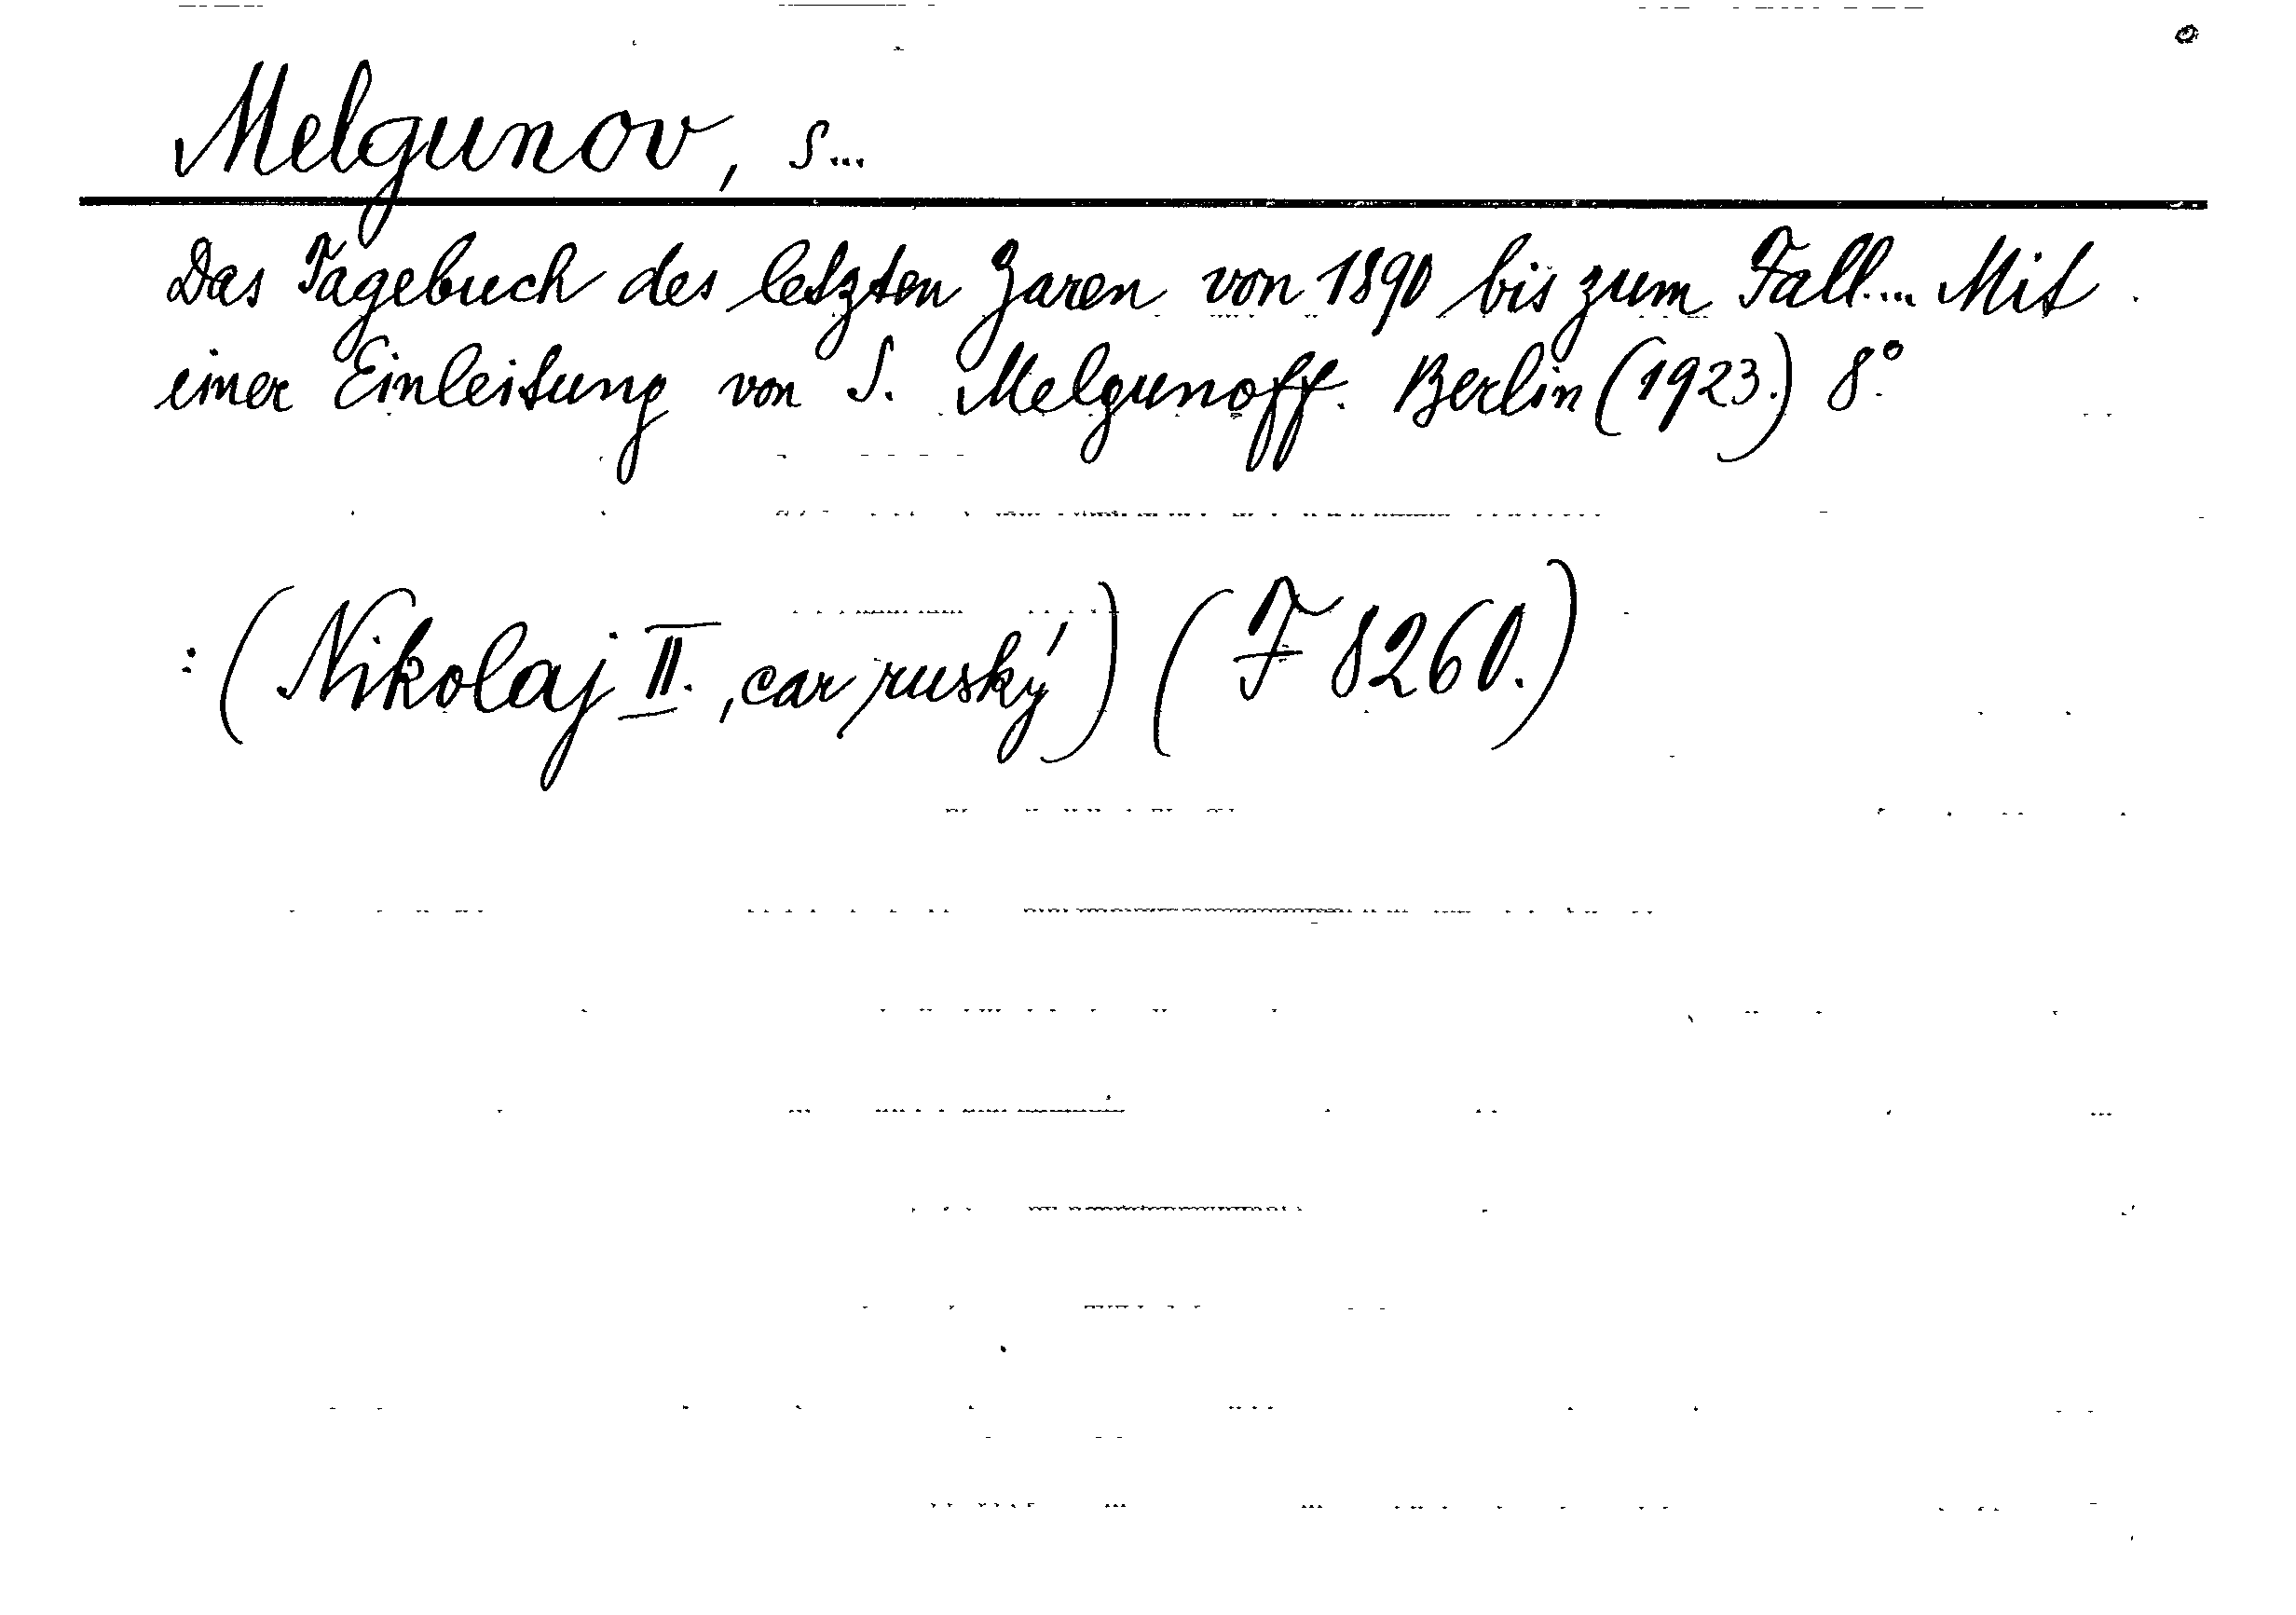 Melgunov, S...
Das Tagebuch des letzten Zaren von 1890 bis zum Fall... Mit
einer Einleitung von S. Melgunoff. Berlin (1923.) 8°.
: (Nikolaj II., car ruský) (F 8260.)